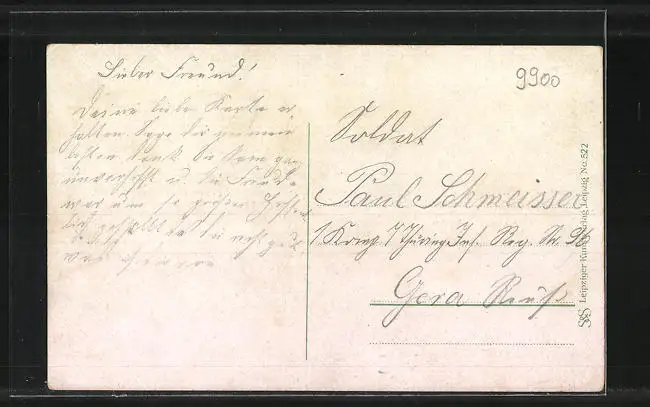 Lieber Freund!
Deine liebe Karte er
halten. Sage dir meinen
besten Dank. Sie kam ganz
unverhofft u. die Freude
war um so größer. Hoffent
lich gefällt es dir recht gut
9900
Soldat
Paul Schmeisser
1. Komp. 7. Thüring. Inf. Reg. Nr. 96
Gera Reuß
Leipziger Kunstverlag Leipzig No. 522